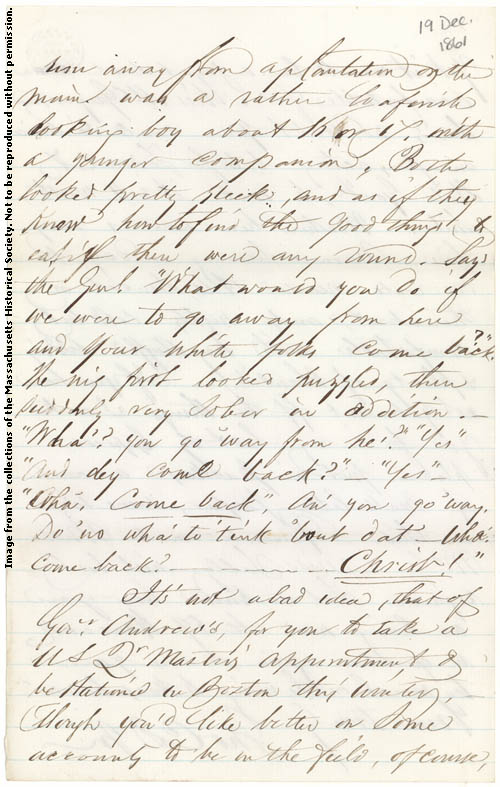 19 Dec.
1861
run away from a plantation on the
main was a rather loaferish
looking boy about 16 or 17. with
a younger companion, Both
looked pretty sleek, and as if they
knew how to find the good things to
eat, if there were any round. Says
the Genl. "What would you do if
we were to go away from here
and your white folks come back?"
The nig first looked puzzled, then
suddenly very sober in addition. —
"Wha'? you go 'way from he'?" "Yes"
"And dey come back?" — "Yes" —
"Wha. Come back", An' you go 'way.
Do' no wha' to tink 'bout dat — Wha.
Come back? — — — — Christ!"
It's not a bad idea, that of
Gov.r Andrew's, for you to take a
US Qr Master's appointment &
be station'd in Boston this winter, —
though you'd like better on some
accounts to be in the field, of course,
Image from the collections of the Massachusetts Historical Society. Not to be reproduced without permission.